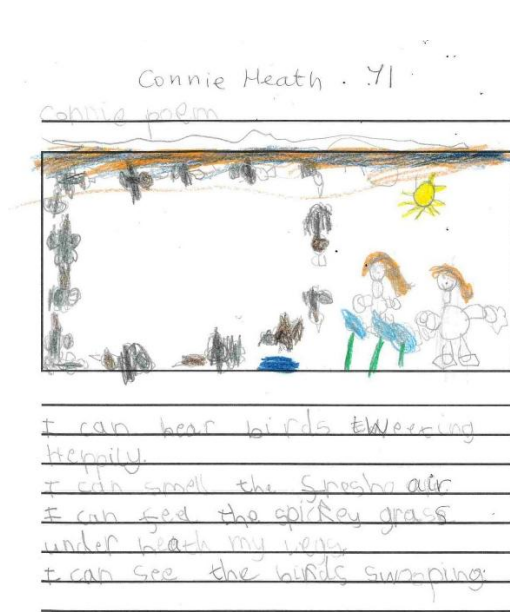 Connie Heath . Y1
Connie poem
I can hear birds tweeting
Heppily.
I can smell the fresh air
I can feel the spickey grass
under heath my legs
I can see the birds swooping.